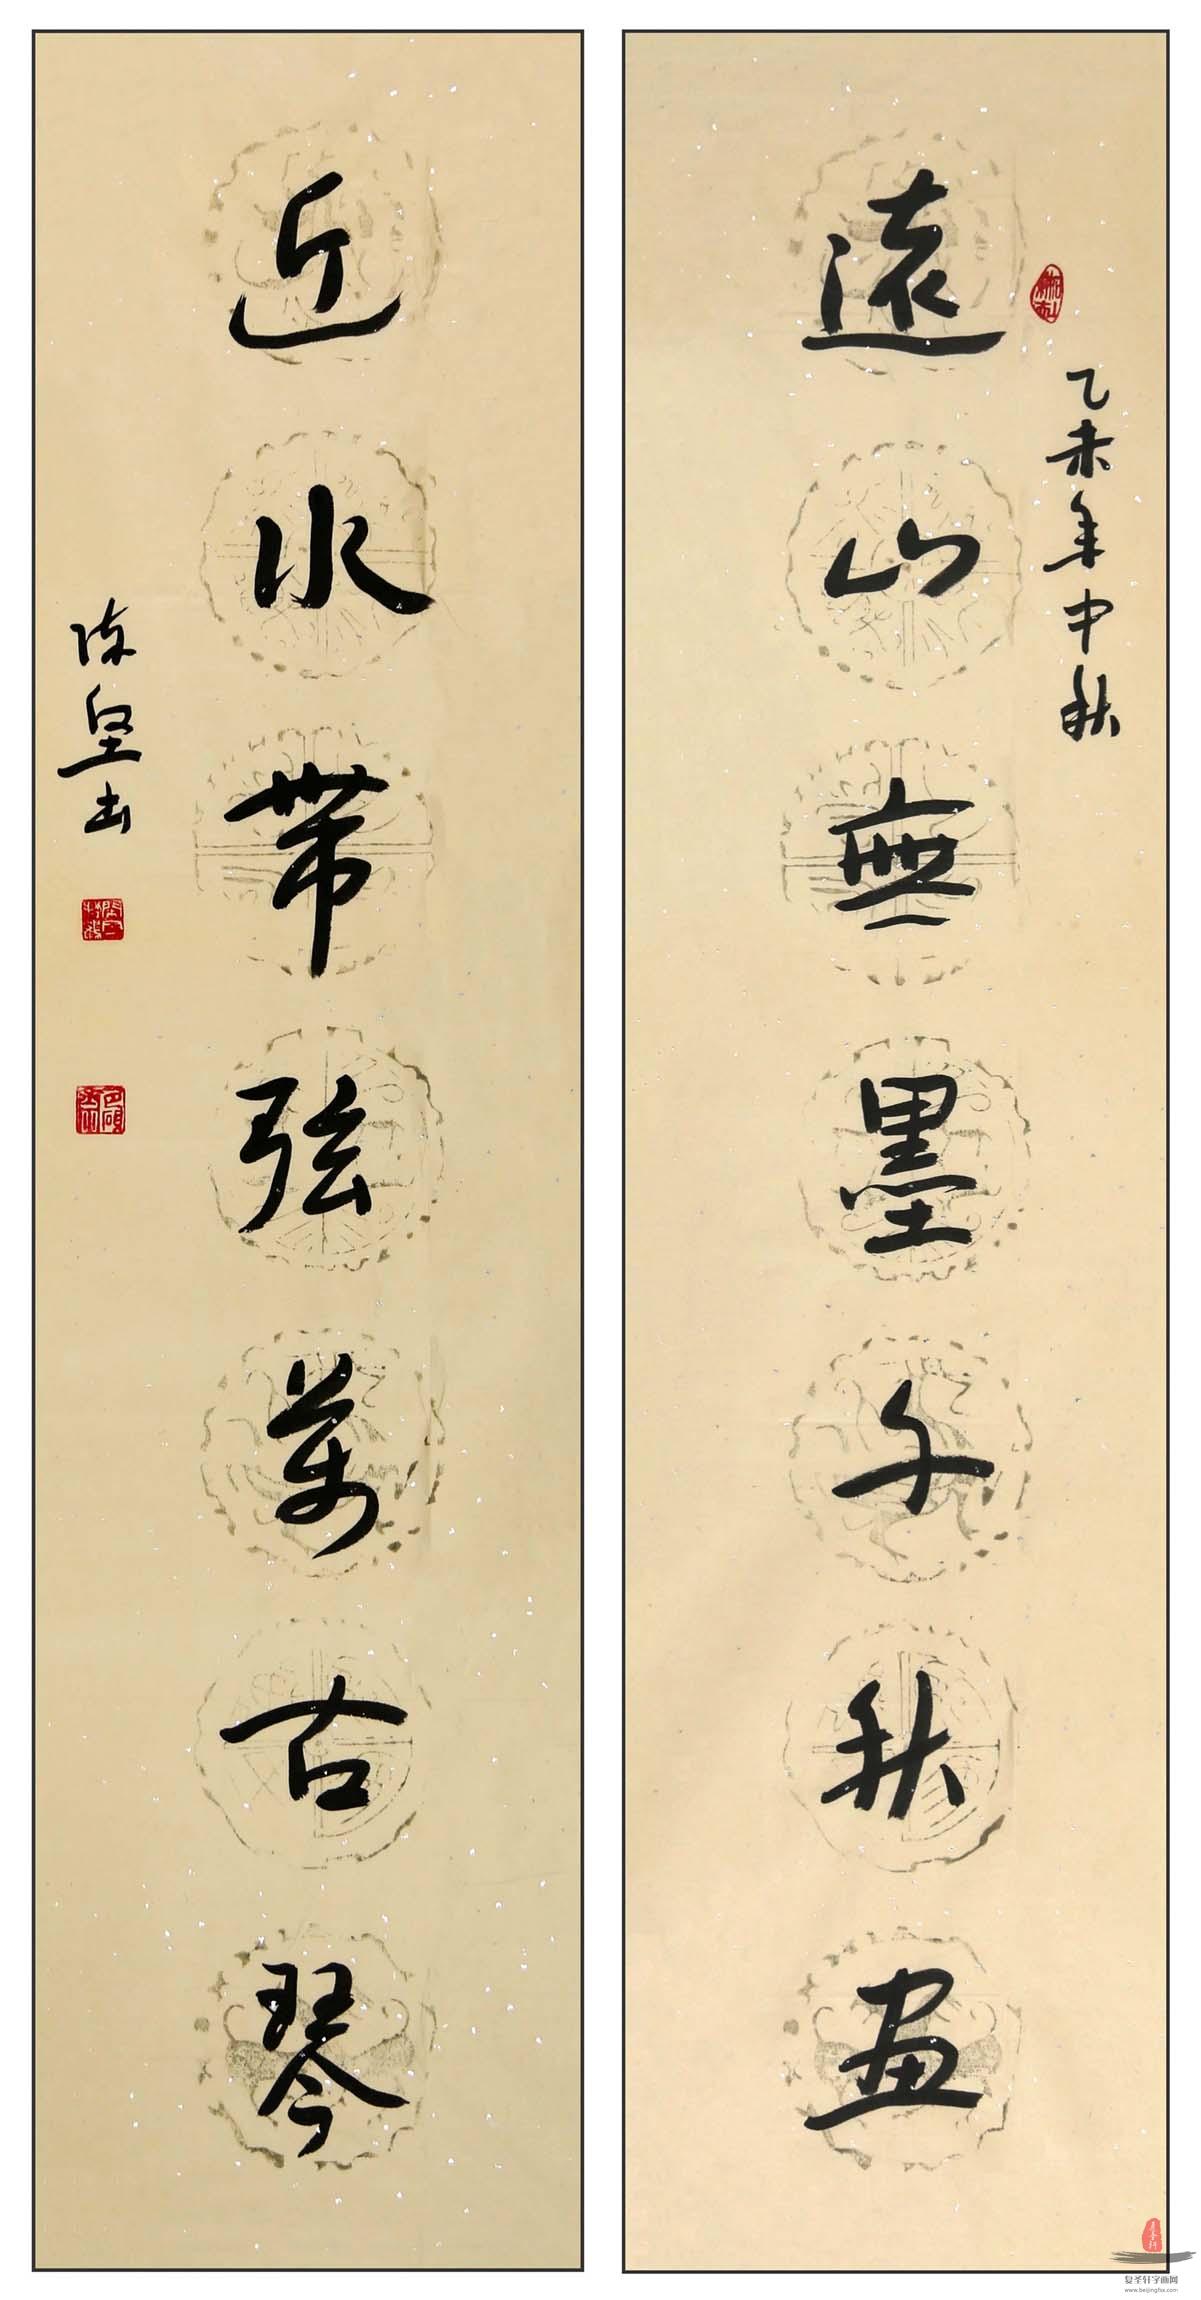 遠山無墨千秋画
乙未年中秋
近水带弦萬古琴
陈坚书
复圣轩字画网
www.beijingfsx.com